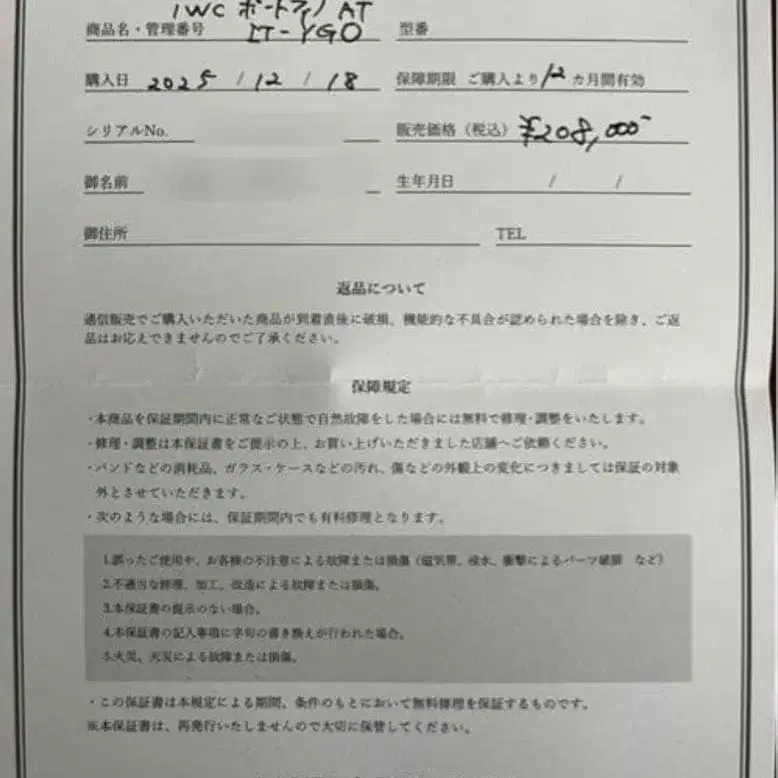 IWC ポートフィノ AT
商品名・管理番号 IT-YGO 型番
購入日 2025 / 12 / 18 保障期限 ご購入より 12 カ月間有効
シリアルNo. 販売価格（税込） ¥208,000-
御名前 生年月日 / /
御住所 TEL
返品について
通信販売でご購入いただいた商品が到着直後に破損、機能的な不具合が認められた場合を除き、ご返
品はお応えできませんのでご了承ください。
保障規定
・本商品を保証期間内に正常なご状態で自然故障をした場合には無料で修理・調整をいたします。
・修理・調整は本保証書をご提示の上、お買い上げいただきました店舗へご依頼ください。
・バンドなどの消耗品、ガラス・ケースなどの汚れ、傷などの外観上の変化につきましては保証の対象
外とさせていただきます。
・次のような場合には、保証期間内でも有料修理となります。
1.誤ったご使用や、お客様の不注意による故障または損傷（磁気帯、浸水、衝撃によるパーツ破損 など）
2.不適当な修理、加工、改造による故障または損傷。
3.本保証書の提示のない場合。
4.本保証書の記入事項に字句の書き換えが行われた場合。
5.火災、天災による故障または損傷。
・この保証書は本規定による期間、条件のもとにおいて無料修理を保証するものです。
※本保証書は、再発行いたしませんので大切に保管してください。